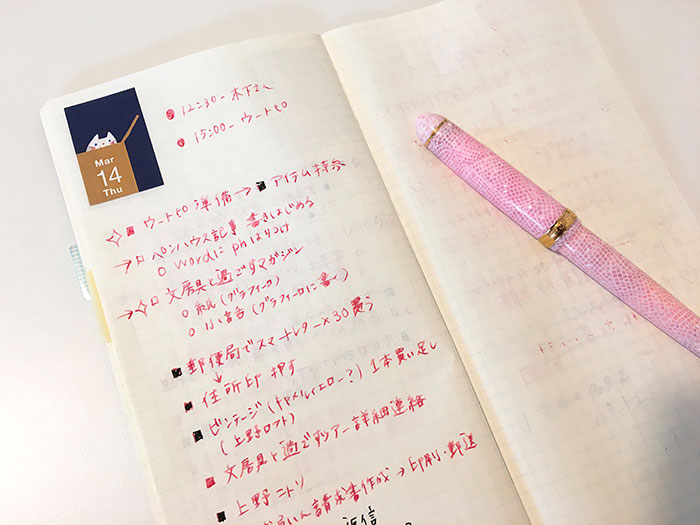 Mar
14
Thu
12:30- 木下さん
15:00- ウートピ
ウートピ 準備→■ アイテム持参
→□ ペンハウス記事 書きはじめる
○ wordに phはりつけ
→□ 文房具と過ごすマガジン
○ 紙(グラフィーロ)
○ 小宮舎(グラフィーロに書く)
■ 郵便局でスマートレター×30買う
■ 住所印 押す
■ ビンテージ(キャメルイエロー?) 1本買い足し
(上野ロフト)
■ 文房具と過ごすツアー詳細連絡
■ 上野ニトリ
請求書作成→印刷・郵送
返信